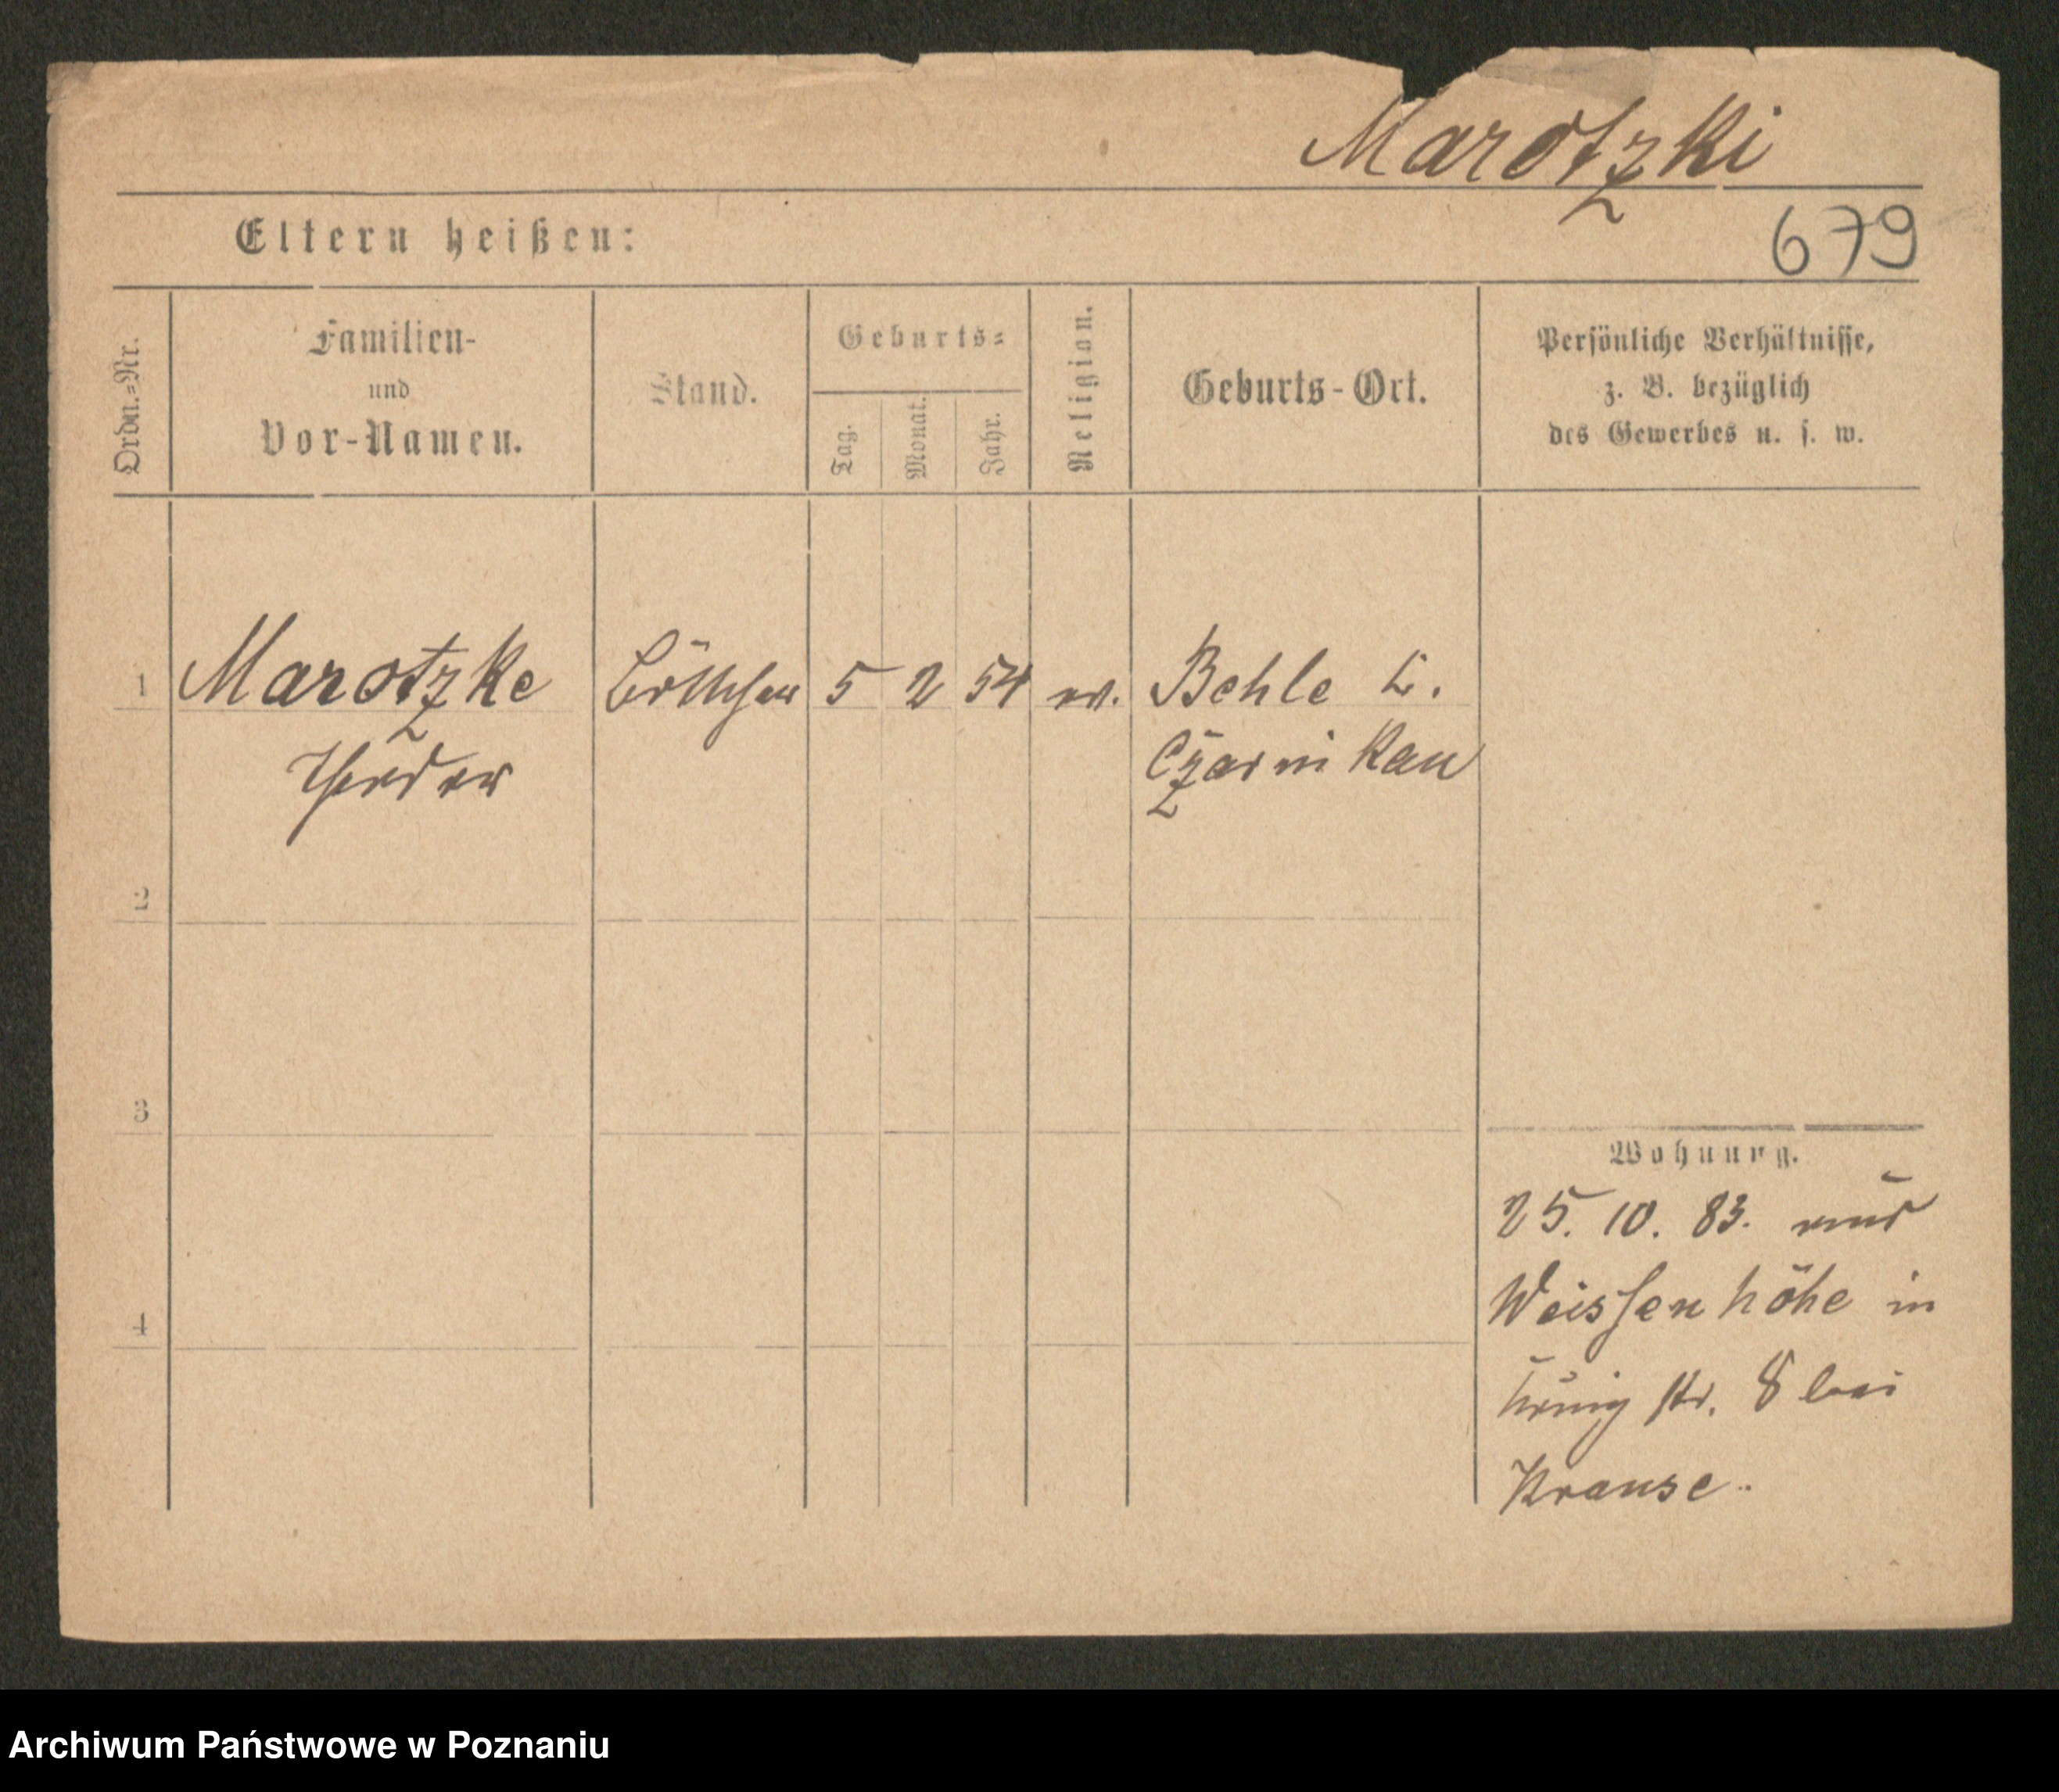 Marotzki
679
Eltern heißen:
Ordn.=Nr.
Familien-
und
Vor-Namen.
Stand.
Geburts=
Tag.
Monat.
Jahr.
Religion.
Geburts-Ort.
Persönliche Verhältnisse,
z. B. bezüglich
des Gewerbes u. s. w.
1 Marotzke Böttcher 5 2 54 ev. Behle K.
Theodor Czarnikau
2
3
Wohnung.
25. 10. 83.
Weissenhöhe in
4
König str. 8 bei
Krause.
Archiwum Państwowe w Poznaniu